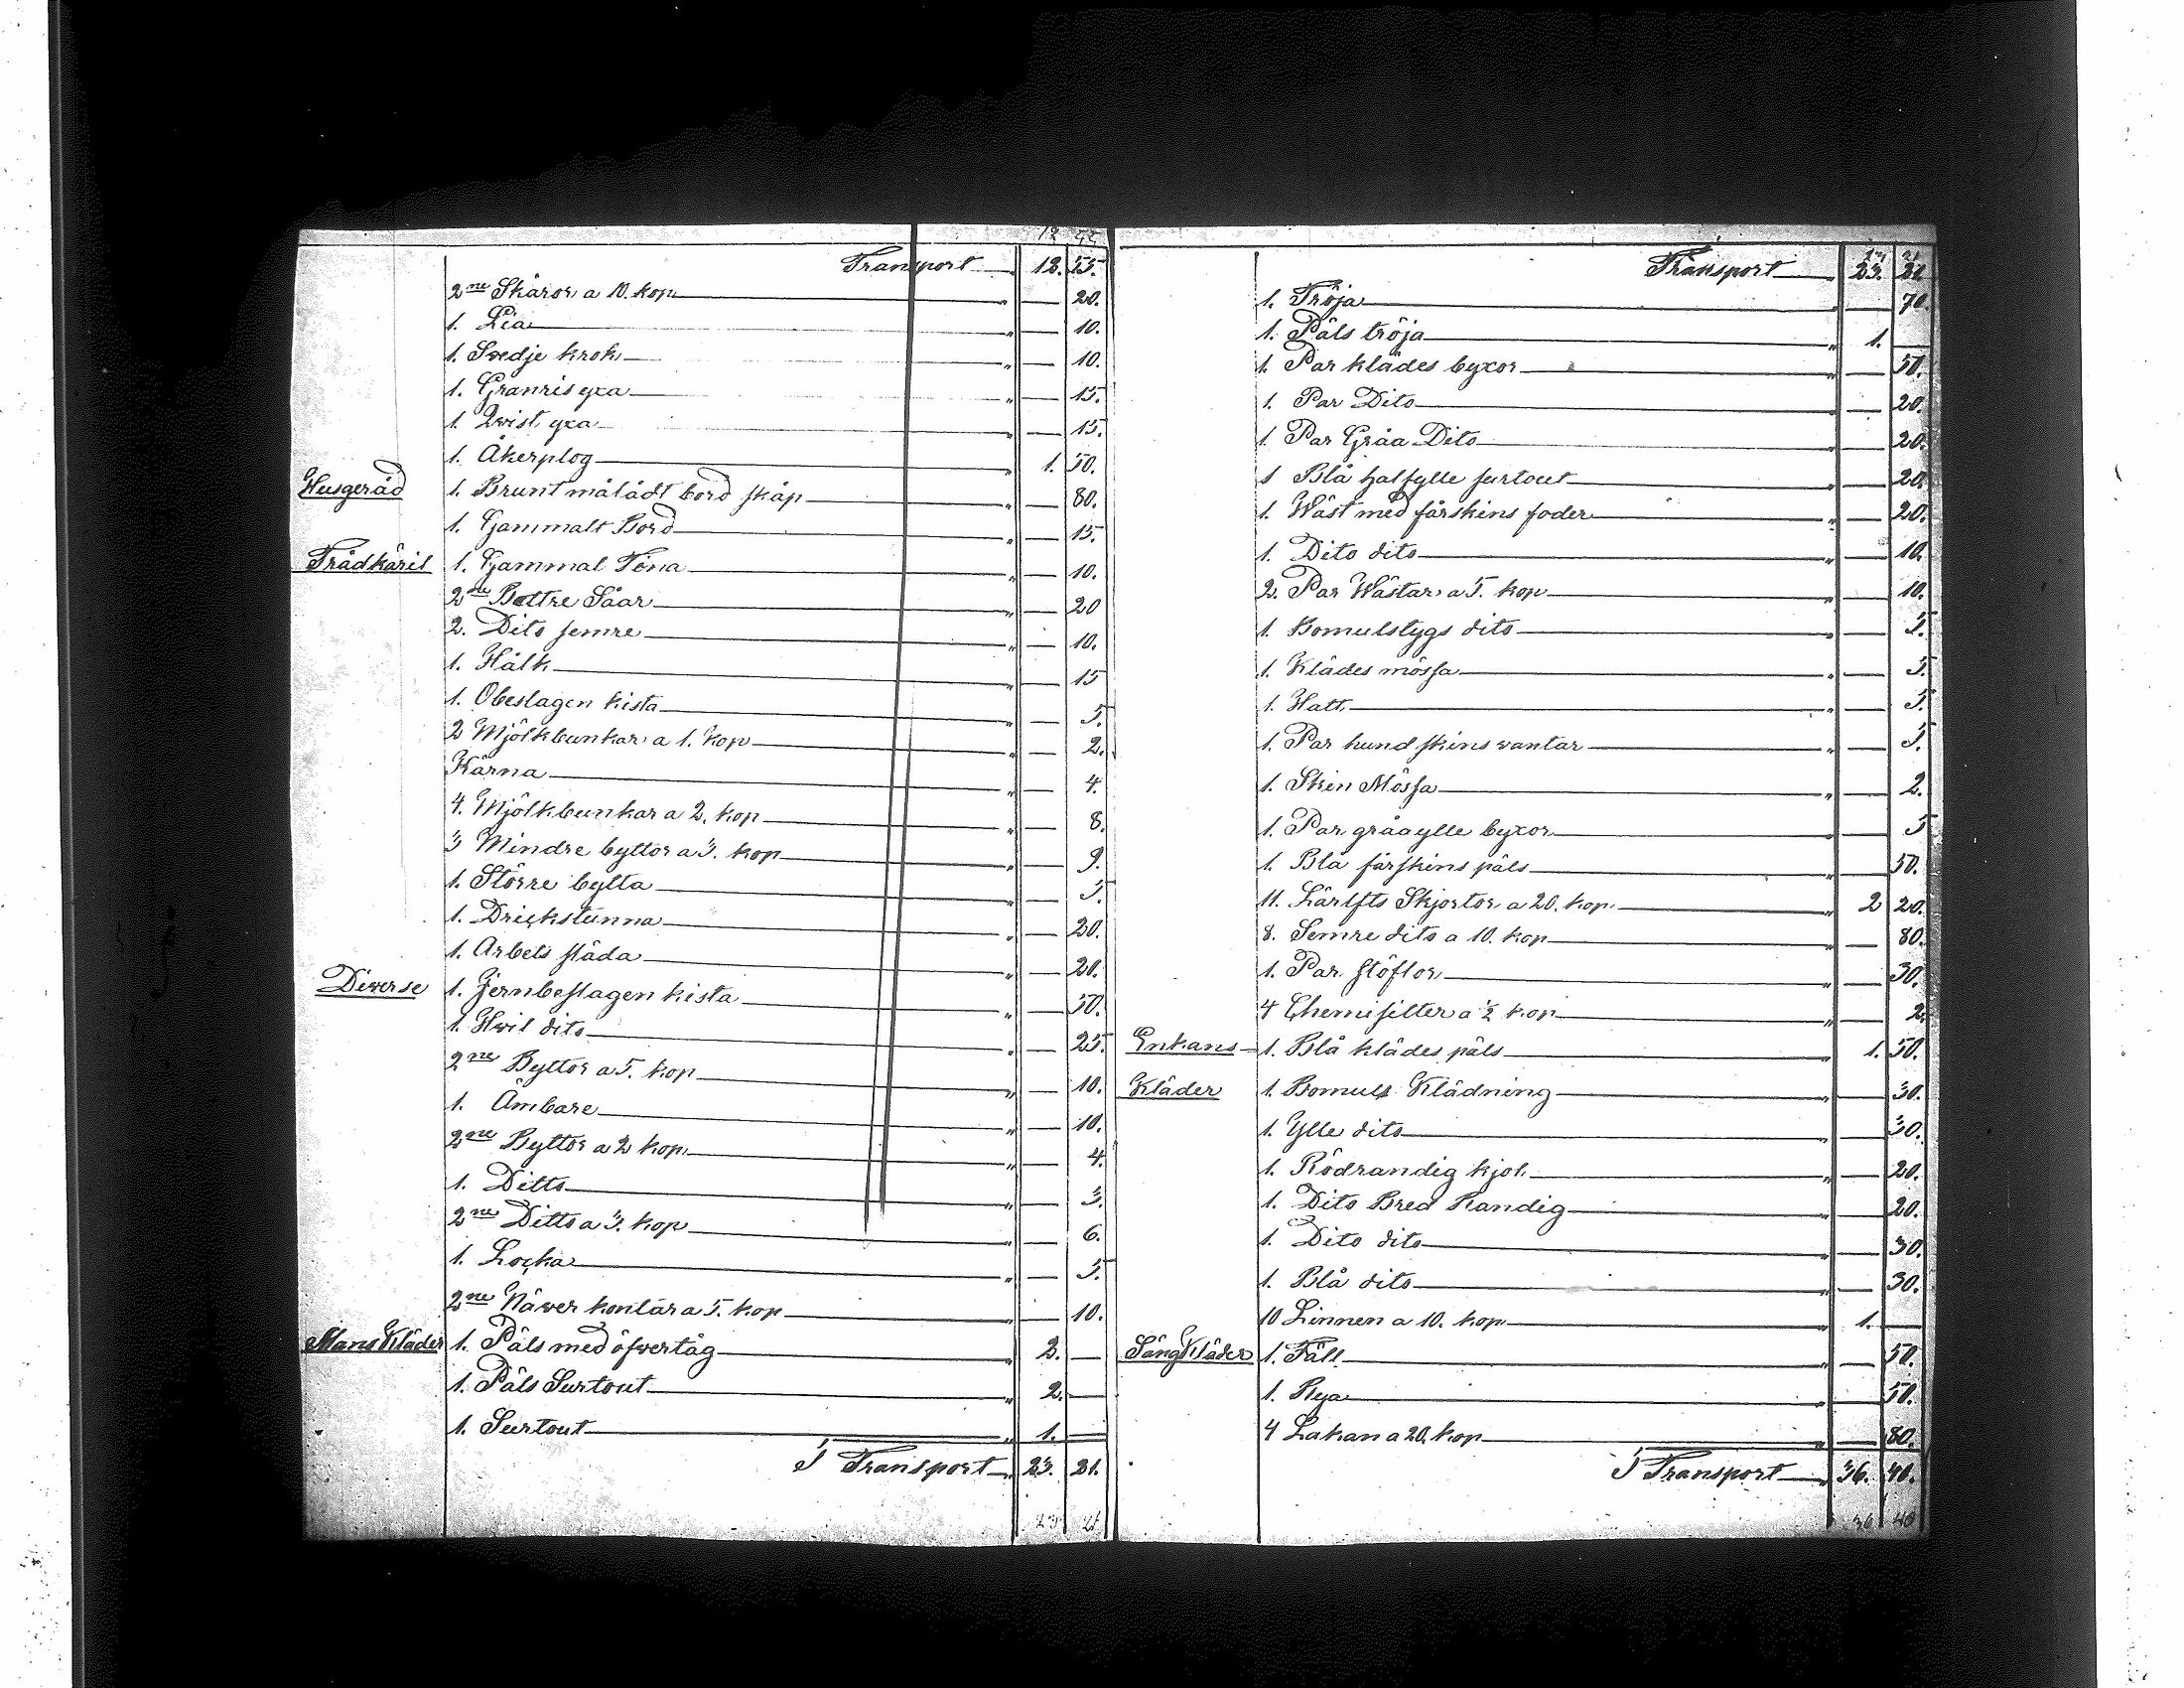 12 55
Transport 12. 55.
2ne Skäror a 10. kop " — 20.
1. Lia " — 10.
1. Svedje krok " — 10.
1. Granris yxa " — 15.
1. Qvist yxa " — 15.
1. Åkerplog " 1. 50.
Husgeråd 1. Brunt målådt bord skåp " — 80.
1. Gammalt Bord " — 15.
Trädkäril 1. Gammal Tina " — 10.
2ne Bättre Såar " — 20
2. Dito semre " — 10.
1. Hålk " — 15
1. Obeslagen kista " — 5.
2 Mjölkbunkar a 1. kop " — 2.
Kärna " — 4.
4. Mjölkbunkar a 2. kop " — 8.
3 Mindre byttor a 3. kop " — 9.
1. Större bytta " — 5.
1. Drickstunna " — 20.
1. Arbets släda " — 20.
Diverse 1. Jernbeslagen kista " — 50.
1. Hvit dito " — 25.
2ne Byttor a 5. kop " — 10.
1. Ämbare " — 10.
2ne Byttor a 2 kop " — 4.
1. Ditto " — 3.
2ne Ditto a 3. kop " — 6.
1. Locka " — 5.
2ne Näver kontar a 5. kop 10.
Mans Kläder 1. Päls med öfvertåg " 3. —
1. Päls Surtout " 2. —
1. Surtout " 1. —
I Transport " 23. 21.
23 21
23 21
Transport " 23. 21
1. Tröja " — 70.
1. Päls tröja " 1. —
1. Par klädes byxor " — 50.
1. Par Dito " — 20.
1. Par Gråa Dito " — 20.
1 Blå halfylle surtout " — 20.
1. Wäst med fårskins foder " — 20.
1. Dito dito " — 10.
2. Par Wästar a 5. kop " — 10.
1. Bomulstygs dito " — 5.
1. Klädes mössa " — 5.
1. Hatt " — 5.
1. Par hundskins vantar " — 5.
1. Skin Mössa " — 2.
1. Par gråa ylle byxor " — 5
1. Blå fårskins päls " 50.
11. Lärfts Skjortor a 20. kop " 2 20.
8. Semre dito a 10. kop " — 80.
1. Par stöflor " — 30.
4 Chemisetter a ½ kop " — 2.
Enkans 1. Blå klädes päls " 1. 50.
Kläder 1. Bomuls Klädning " — 30.
1. Ylle dito " — 30.
1. Rödrandig kjol " — 20.
1. Dito Bred Randig " — 20.
1. Dito dito " — 30.
1. Blå dito " — 30.
10 Linnen a 10. kop " 1. —
Säng Kläder 1. Fäll " — 50.
1. Rya " — 50.
4 Lakan a 20. kop " — 80.
I Transport " 36. 40.
36 40